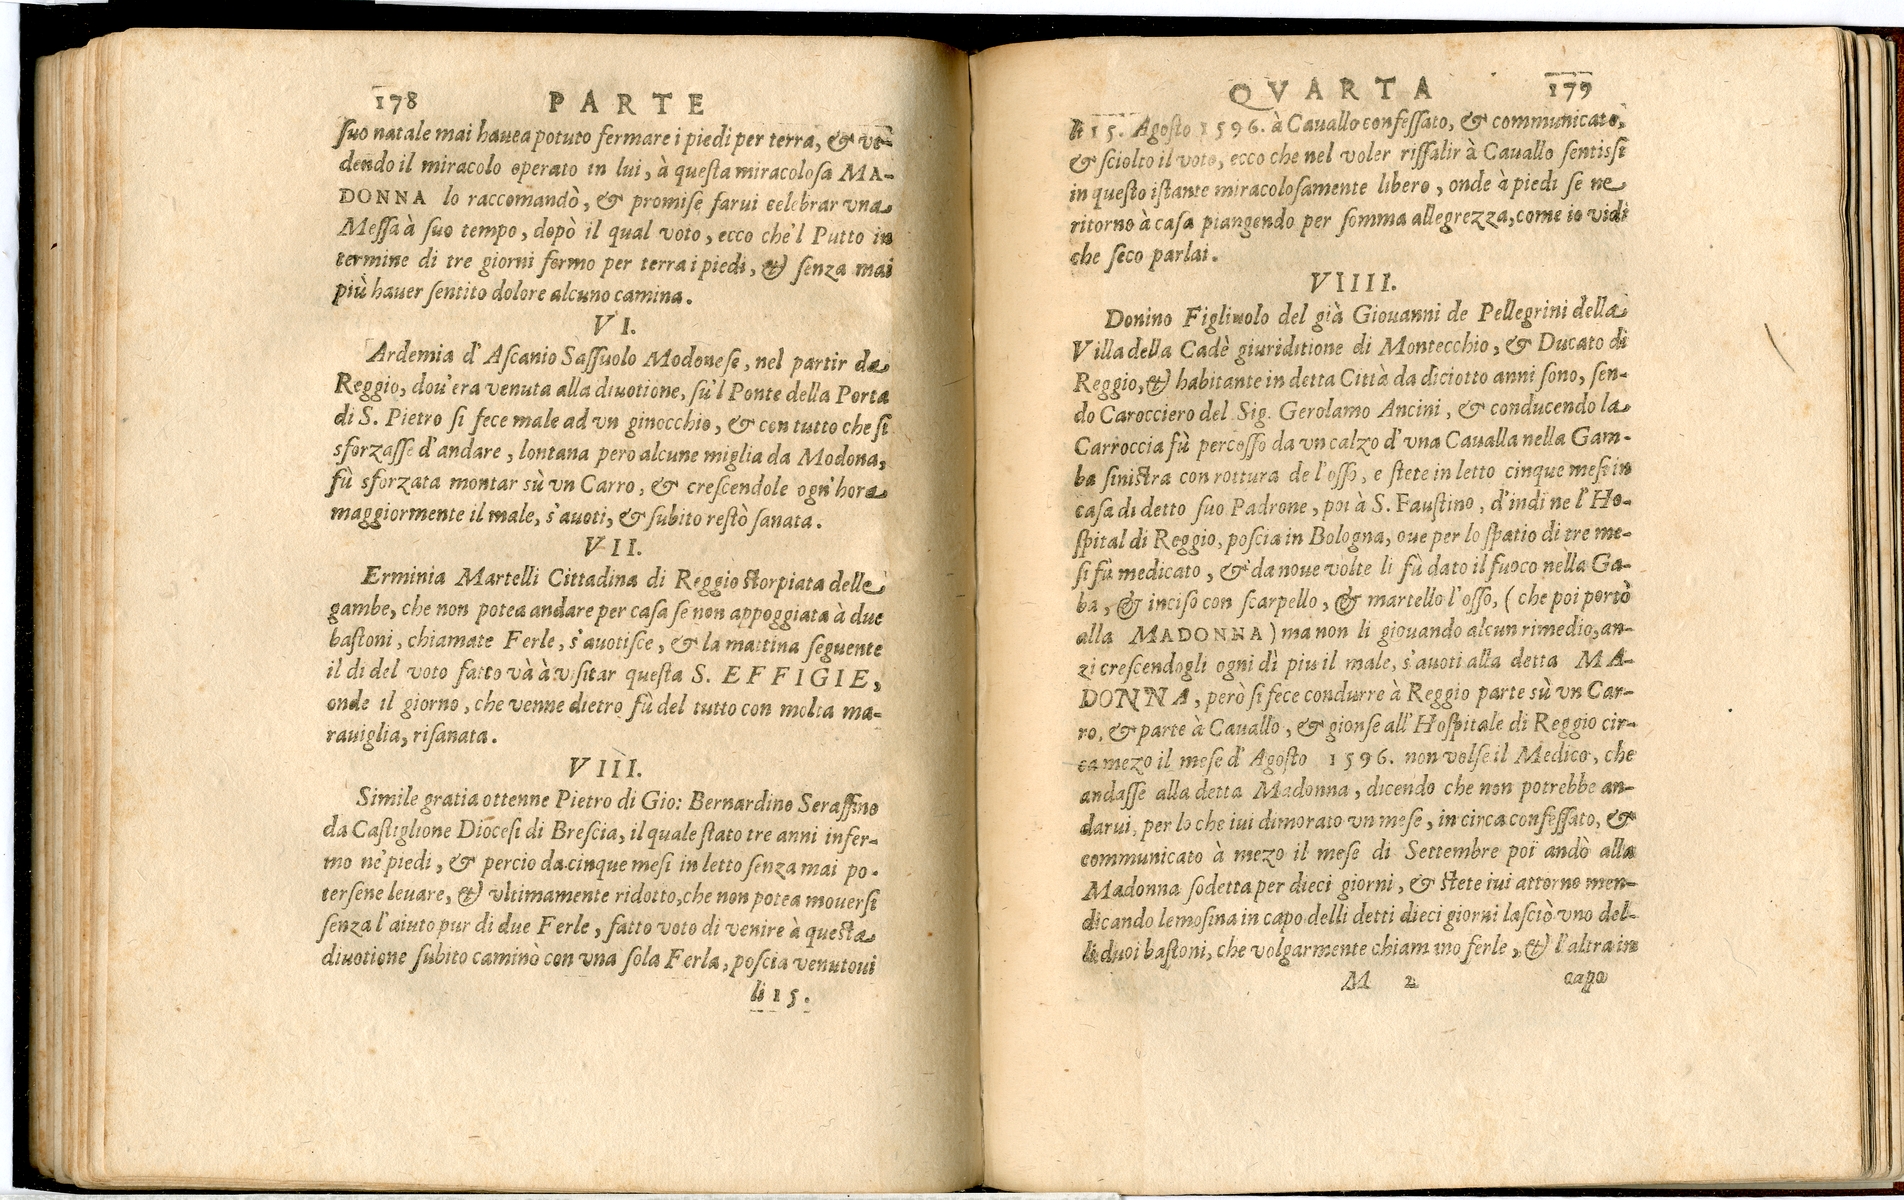 178 PARTE
ſuo natale mai hauea potuto fermare i piedi per terra, & vè-
dendo il miracolo operato in lui, à queſta miracoloſa MA-
DONNA lo raccomandò, & promiſe farui celebrar vna
Meſſa à ſuo tempo, dopò il qual voto, ecco che'l Putto in
termine di tre giorni fermo per terra i piedi, & ſenza mai
più hauer ſentito dolore alcuno camina.
VI.
Ardemia d' Aſcanio Saſſuolo Modoneſe, nel partir da
Reggio, dou'era venuta alla diuotione, sù'l Ponte della Porta
di S. Pietro ſi fece male ad vn ginocchio, & con tutto che ſi
sforzaſſe d'andare, lontana pero alcune miglia da Modona,
fù sforzata montar sù vn Carro, & creſcendole ogn'hora
maggiormente il male, s'auoti, & ſubito reſtò ſanata.
VII.
Erminia Martelli Cittadina di Reggio ſtorpiata delle
gambe, che non potea andare per caſa ſe non appoggiata à due
baſtoni, chiamate Ferle, s'auotiſce, & la mattina ſeguente
il di del voto fatto và à viſitar queſta S. EFFIGIE,
onde il giorno, che venne dietro fù del tutto con molta ma-
rauiglia, riſanata.
VIII.
Simile gratia ottenne Pietro di Gio: Bernardino Seraffino
da Caſtiglione Dioceſi di Breſcia, il quale ſtato tre anni infer-
mo ne' piedi, & percio da cinque meſi in letto ſenza mai po-
terſene leuare, & vltimamente ridotto, che non potea mouerſi
ſenza l'aiuto pur di due Ferle, fatto voto di venire à queſta
diuotione ſubito caminò con vna ſola Ferla, poſcia venutoui
li 15.
QVARTA 179
li 15. Agoſto 1596. à Cauallo confeſſato, & communicato,
& ſciolto il voto, ecco che nel voler riſſalir à Cauallo ſentiſſi
in queſto iſtante miracoloſamente libero, onde à piedi ſe ne
ritorno à caſa piangendo per ſomma allegrezza, come io vidi
che ſeco parlai.
VIIII.
Donino Figliuolo del già Giouanni de Pellegrini della
Villa della Cadè giuriditione di Montecchio, & Ducato di
Reggio, & habitante in detta Città da diciotto anni ſono, ſen-
do Carocciero del Sig. Gerolamo Ancini, & conducendo la
Carroccia fù percoſſo da vn calzo d'vna Caualla nella Gam-
ba ſiniſtra con rottura de l'oſſo, e ſtete in letto cinque meſi in
caſa di detto ſuo Padrone, poi à S. Fauſtino, d'indi ne l'Ho-
ſpital di Reggio, poſcia in Bologna, oue per lo ſpatio di tre me-
ſi fù medicato, & da noue volte li fù dato il fuoco nella Gā-
ba, & inciſo con ſcarpello, & martello l'oſſo, (che poi portò
alla MADONNA) ma non li giouando alcun rimedio, an-
zi creſcendogli ogni dì piu il male, s'auoti alla detta MA-
DONNA, però ſi fece condurre à Reggio parte sù vn Car-
ro, & parte à Cauallo, & gionſe all' Hoſpitale di Reggio cir-
ca mezo il meſe d' Agoſto 1596. non volſe il Medico, che
andaſſe alla detta Madonna, dicendo che non potrebbe an-
darui, per lo che iui dimorato vn meſe, in circa confeſſato, &
communicato à mezo il meſe di Settembre poi andò alla
Madonna ſodetta per dieci giorni, & ſtete iui attorno men-
dicando lemoſina in capo delli detti dieci giorni laſciò vno del-
li duoi baſtoni, che volgarmente chiamano ferle, & l'altra in
M 2 capo